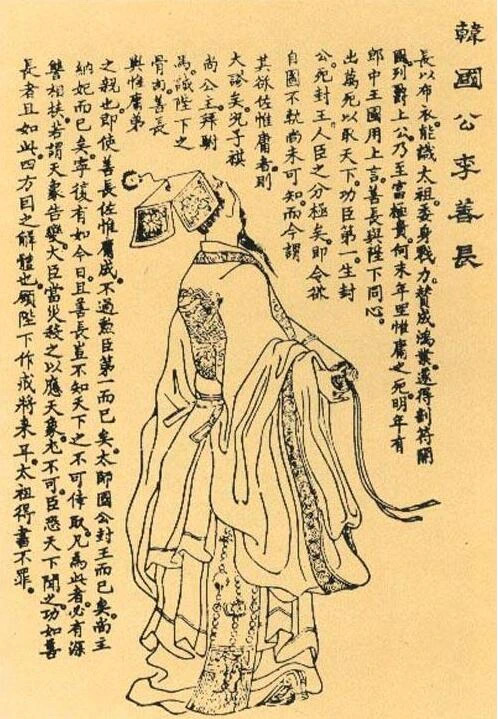 韓國公李善長
長以布衣能識太祖委身戮力贊成鴻業遂得剖符開
國列爵上公乃至富極貴何末年坐惟庸之死明年有
郎中王國用上言善長與陛下同心
出萬死以取天下功臣第一生封
公死封王人臣之分極矣即令欲
自圖不軌尚未可知而今謂
其欲佐惟庸者則
大謬矣兄子祺
尚公主拜駙
為誠陛下之
骨肉善長
與惟庸第
之親也即使善長佐惟庸成不過勲臣第一而已矣太師國公封王而已矣尚主
納妃而已矣寧復有如今日且善長豈不知天下之不可倖取凡為此者必有深
讐相挾若謂天象告變大臣當災殺之以應天象尤不可臣恐天下聞之功如善
長者且如此四方因之解體也願陛下作戒將来耳太祖得書不罪